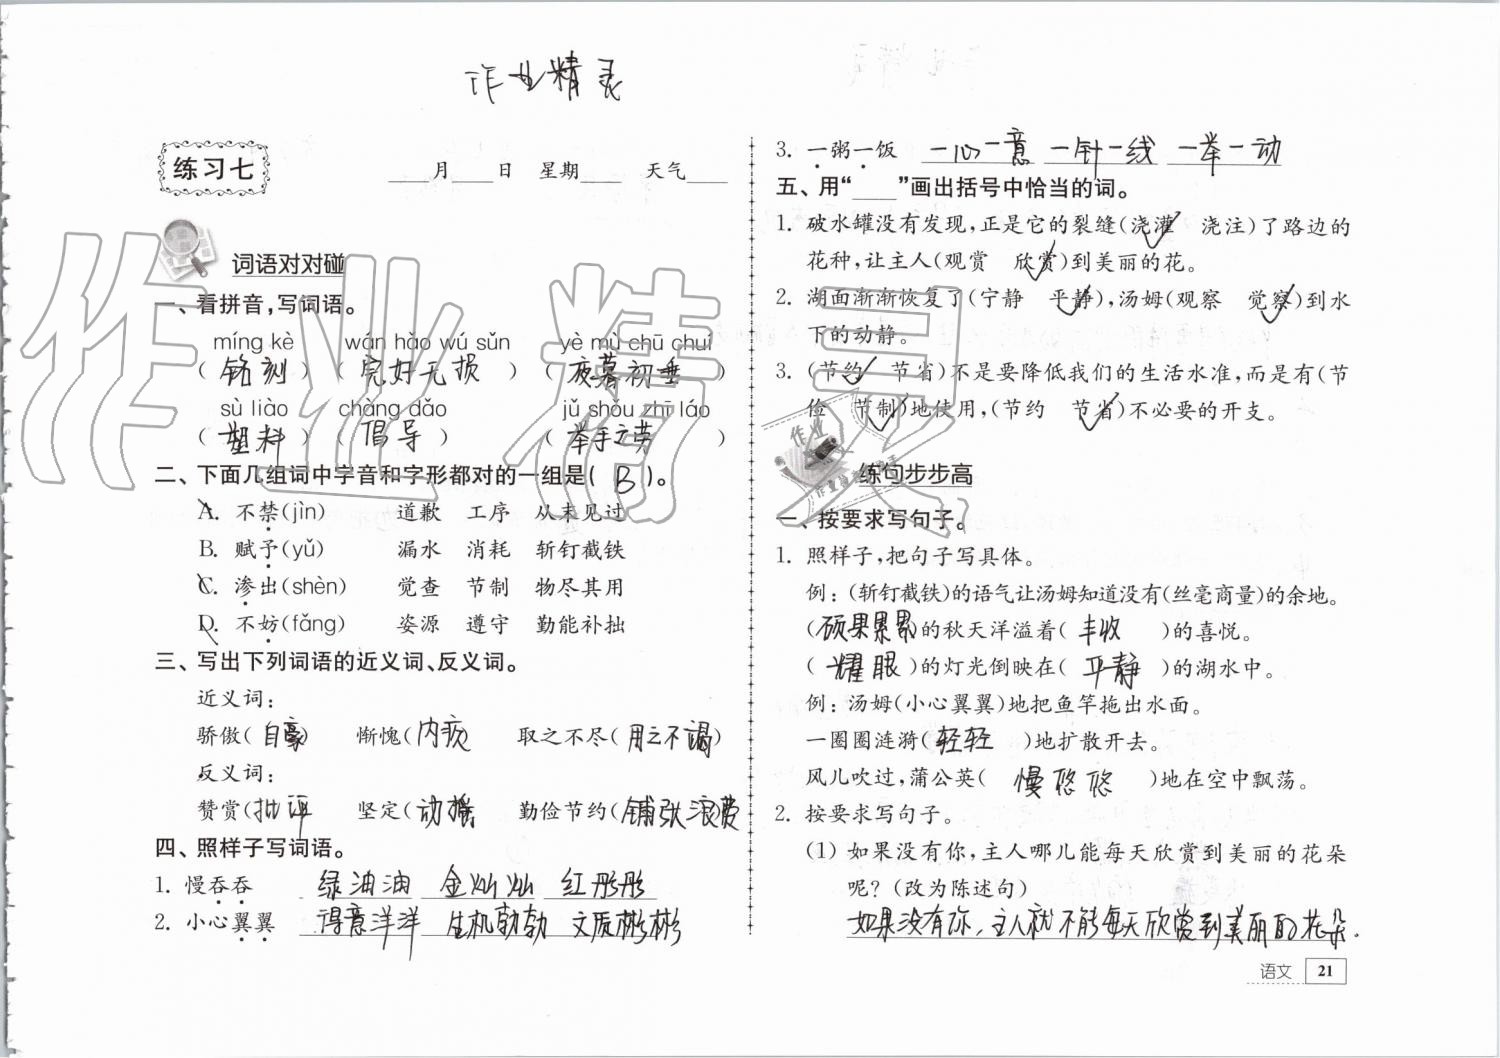 作业精灵
练习七
____月____日 星期____ 天气____
词语对对碰
一、看拼音,写词语。
míng kè wán hǎo wú sǔn yè mù chū chuí
( 铭刻 ) ( 完好无损 ) ( 夜暮初垂 )
sù liào chàng dǎo jǔ shǒu zhī láo
( 塑料 ) ( 倡导 ) ( 举手之劳 )
二、下面几组词中字音和字形都对的一组是( B )。
A. 不禁(jìn) 道歉 工序 从未见过
B. 赋予(yǔ) 漏水 消耗 斩钉截铁
C. 渗出(shèn) 觉查 节制 物尽其用
D. 不妨(fǎng) 姿源 遵守 勤能补拙
三、写出下列词语的近义词、反义词。
近义词:
骄傲(自豪) 惭愧(内疚) 取之不尽(用之不竭)
反义词:
赞赏(批评) 坚定(动摇) 勤俭节约(铺张浪费)
四、照样子写词语。
1. 慢吞吞 绿油油 金灿灿 红彤彤
2. 小心翼翼 得意洋洋 生机勃勃 文质彬彬
3. 一粥一饭 一心一意 一针一线 一举一动
五、用“____”画出括号中恰当的词。
1. 破水罐没有发现,正是它的裂缝(浇灌 浇注)了路边的
花种,让主人(观赏 欣赏)到美丽的花。
2. 湖面渐渐恢复了(宁静 平静),汤姆(观察 觉察)到水
下的动静。
3. (节约 节省)不是要降低我们的生活水准,而是有(节
俭 节制)地使用,(节约 节省)不必要的开支。
练句步步高
一、按要求写句子。
1. 照样子,把句子写具体。
例:(斩钉截铁)的语气让汤姆知道没有(丝毫商量)的余地。
(硕果累累)的秋天洋溢着( 丰收 )的喜悦。
( 耀眼 )的灯光倒映在( 平静 )的湖水中。
例:汤姆(小心翼翼)地把鱼竿拖出水面。
一圈圈涟漪( 轻轻 )地扩散开去。
风儿吹过,蒲公英( 慢悠悠 )地在空中飘荡。
2. 按要求写句子。
(1) 如果没有你,主人哪儿能每天欣赏到美丽的花朵
呢?(改为陈述句)
如果没有你,主人就不能每天欣赏到美丽的花朵.
语文 21